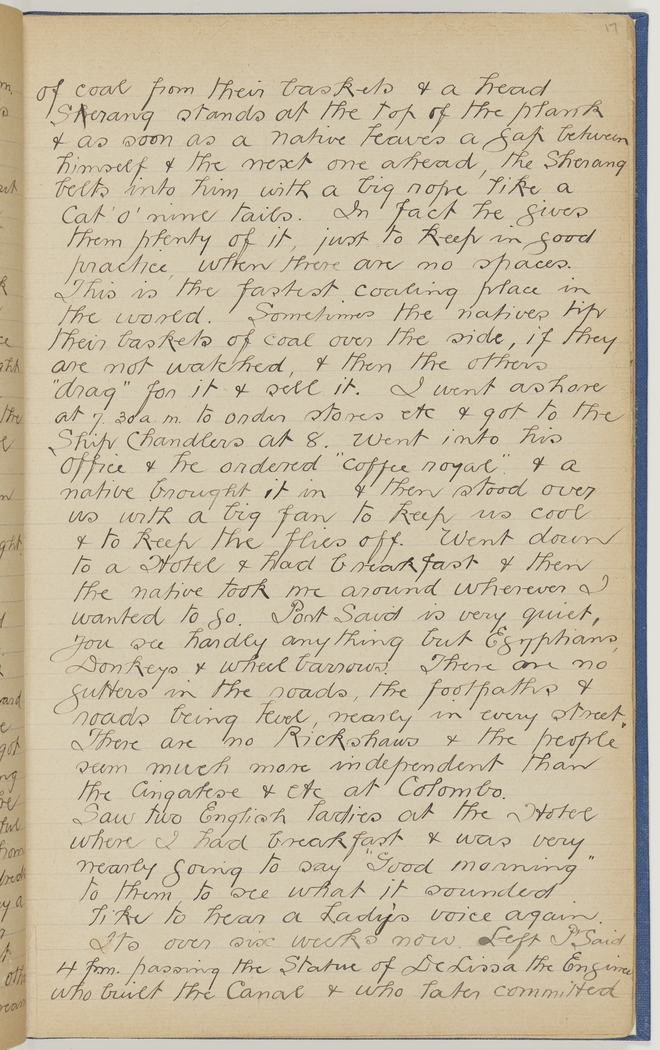 17
of coal from their baskets & a head
Sherang stands at the top of the plank
& as soon as a native leaves a gap between
himself & the next one ahead, the Sherang
belts into him with a big rope like a
Cat 'o' nine tails. In fact he gives
them plenty of it, just to keep in good
practice, when there are no spaces.
This is the fastest coaling place in
the world. Sometimes the natives tip
their baskets of coal over the side, if they
are not watched, & then the others
"drag" for it & sell it. I went ashore
at 7.30 a.m. to order stores etc & got to the
Ship Chandlers at 8. Went into his
office & he ordered "coffee royal" & a
native brought it in & then stood over
us with a big fan to keep us cool
& to keep the flies off. Went down
to a Hotel & had breakfast & then
the native took me around wherever I
wanted to go. Port Said is very quiet,
you see hardly anything but Egyptians,
Donkeys & wheelbarrows. There are no
gutters in the roads, the footpaths &
roads being level, nearly in every street.
There are no Rickshaws & the people
seem much more independent than
the Cingalese & etc at Colombo.
Saw two English ladies at the Hotel
where I had breakfast & was very
nearly going to say "Good morning"
to them, to see what it sounded
like to hear a Lady's voice again.
Its over six weeks now. Left P. Said
4 p.m. passing the Statue of De Lissa the Engineer
who built the Canal & who later committed